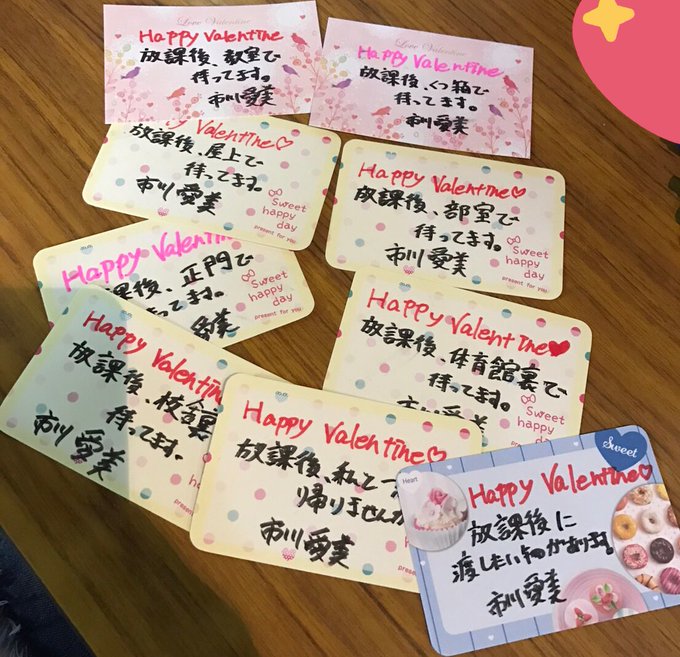 Love Valentine
Happy Valentine
放課後、教室で
待ってます。
市川愛美
Love Valentine
Happy Valentine
放課後、くつ箱で
待ってます。
市川愛美
Valentine♡
放課後、屋上で
待ってます。
市川愛美
Sweet
happy
day
present for you
Happy Valentine♡
放課後、部室で
待ってます。
市川愛美
Sweet
happy
day
present for you
Happy Valentine
課後、正門で
てます。
愛美
Sweet
happy
day
present for you
Happy Valentine♥
放課後、体育館裏で
待ってます。
市川愛美
Sweet
happy
day
Happy Valentine
放課後、校舎裏
待ってます。
市川愛美
Happy Valentine♡
放課後、私と一
帰りませんか
市川愛美
present for you
Heart
Sweet
Happy Valentine♡
放課後に
渡したいものがあります。
市川愛美